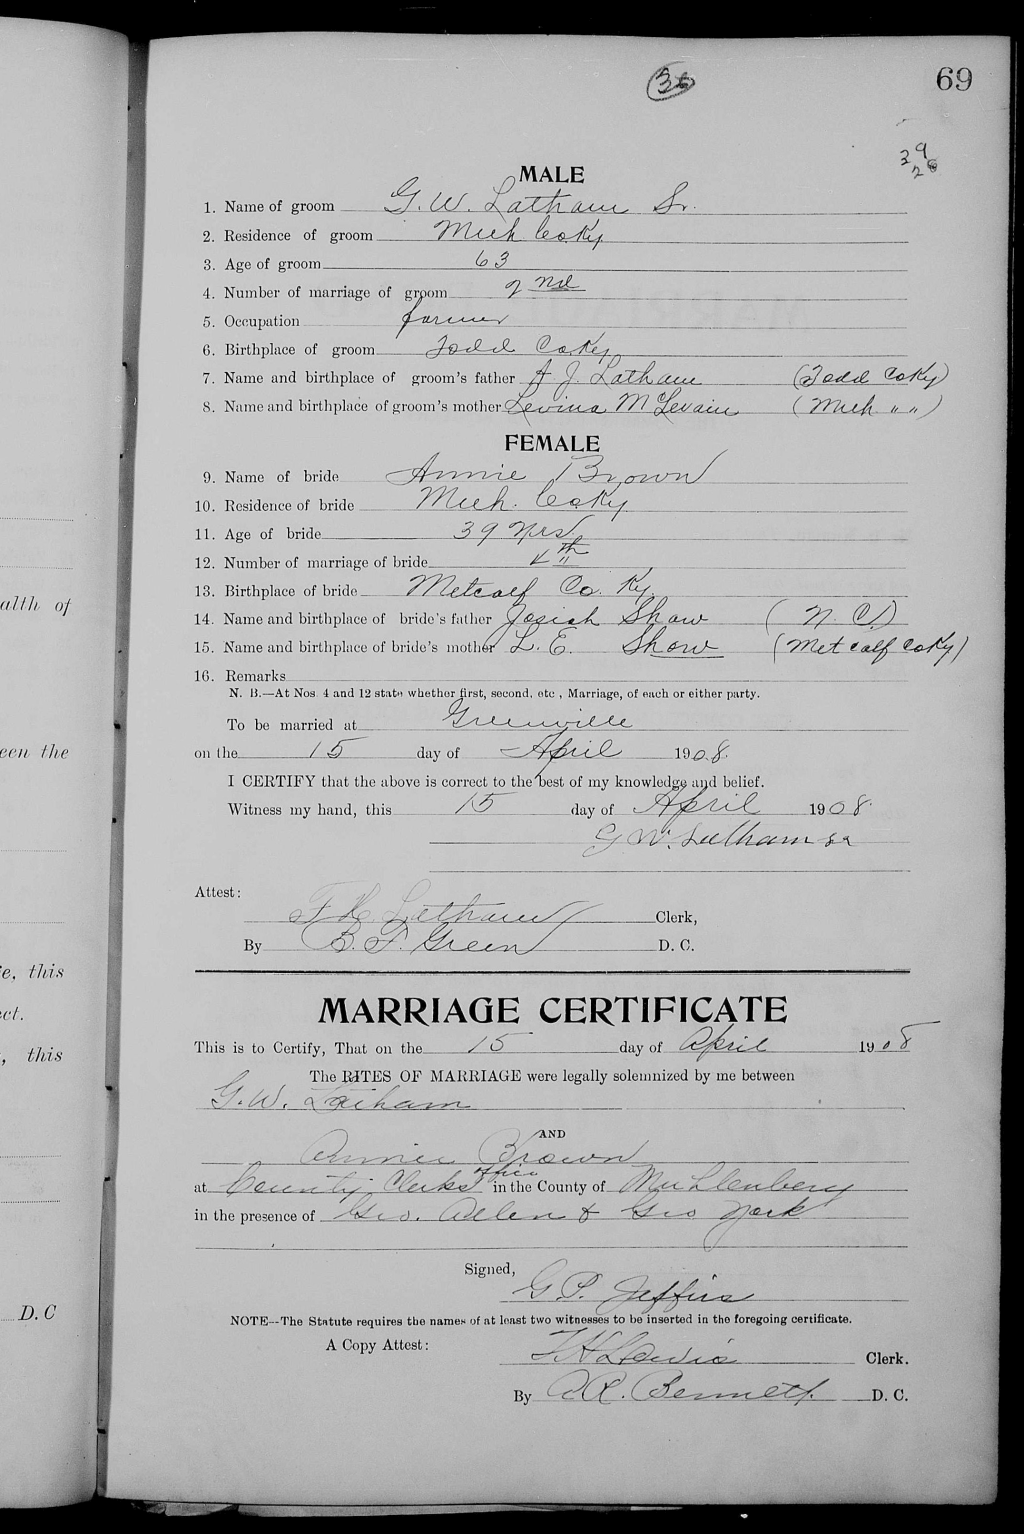 69
36
39
28
MALE
1. Name of groom G. W. Latham Sr.
2. Residence of groom Muh Co Ky
3. Age of groom 63
4. Number of marriage of groom 2nd
5. Occupation farmer
6. Birthplace of groom Todd Co Ky
7. Name and birthplace of groom's father A J. Latham (Todd Co Ky)
8. Name and birthplace of groom's mother Levina McLevain (Muh " ")
FEMALE
9. Name of bride Annie Brown
10. Residence of bride Muh. Co Ky
11. Age of bride 39 yrs
12. Number of marriage of bride 4th
13. Birthplace of bride Metcalf Co. Ky.
14. Name and birthplace of bride's father Josiah Shaw (N. C.)
15. Name and birthplace of bride's mother L. E. Shaw (Metcalf Co Ky)
16. Remarks
N. B.—At Nos. 4 and 12 state whether first, second, etc., Marriage, of each or either party.
To be married at Greenville
on the 15 day of April 1908.
I CERTIFY that the above is correct to the best of my knowledge and belief.
Witness my hand, this 15 day of April 1908.
G W. Latham sr
Attest:
Latham Clerk,
By B. F. Green D. C.
MARRIAGE CERTIFICATE
This is to Certify, That on the 15 day of April 1908
The RITES OF MARRIAGE were legally solemnized by me between
G. W. Latham
AND
Annie Brown
at County Clerks office in the County of Muhlenberg
in the presence of Geo. Allen & Geo York
Signed,
G. P. Jeffris
NOTE--The Statute requires the names of at least two witnesses to be inserted in the foregoing certificate.
A Copy Attest:
Clerk.
By R. Bennett. D. C.
alth of
een the
e, this
ect.
, this
D. C